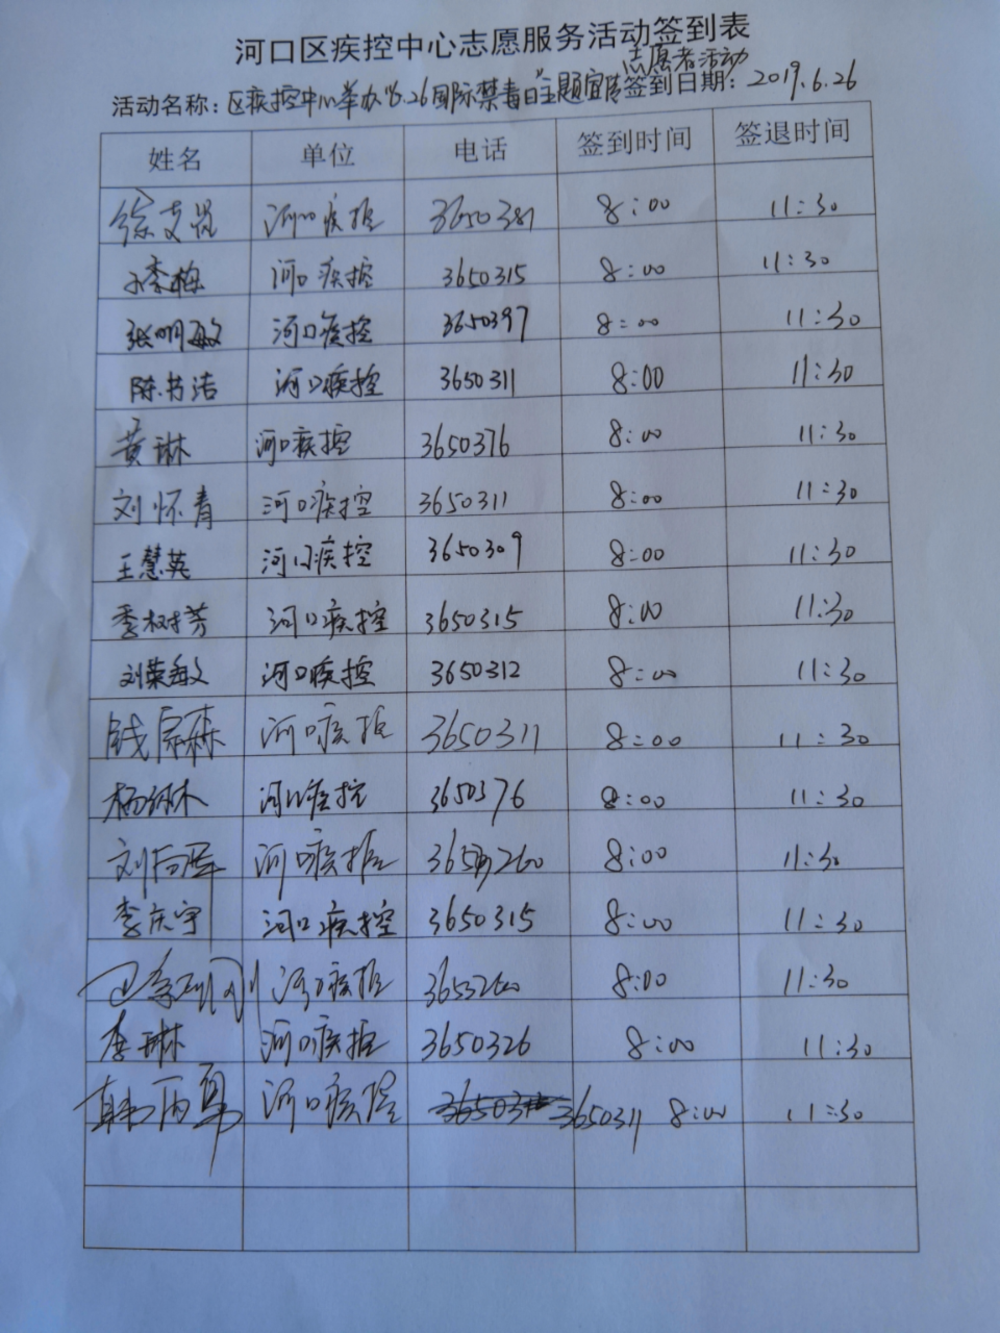 河口区疾控中心志愿服务活动签到表
志愿者活动
活动名称：区疾控中心举办"6.26国际禁毒日"主题宣传 签到日期：2019.6.26
姓名 单位 电话 签到时间 签退时间
河口疾控 3650381 8:00 11:30
河口疾控 3650315 8:00 11:30
张明敏 河口疾控 3650397 8:00 11:30
陈书洁 河口疾控 3650311 8:00 11:30
黄琳 河口疾控 3650376 8:00 11:30
刘怀青 河口疾控 3650311 8:00 11:30
王慧英 河口疾控 3650309 8:00 11:30
李树芳 河口疾控 3650315 8:00 11:30
刘荣敏 河口疾控 3650312 8:00 11:30
钱宗森 河口疾控 3650311 8:00 11:30
杨琳 河口疾控 3650376 8:00 11:30
河口疾控 8:00 11:30
李庆宇 河口疾控 3650315 8:00 11:30
河口疾控 8:00 11:30
李琳 河口疾控 3650326 8:00 11:30
河口疾控 3650311 8:00 11:30